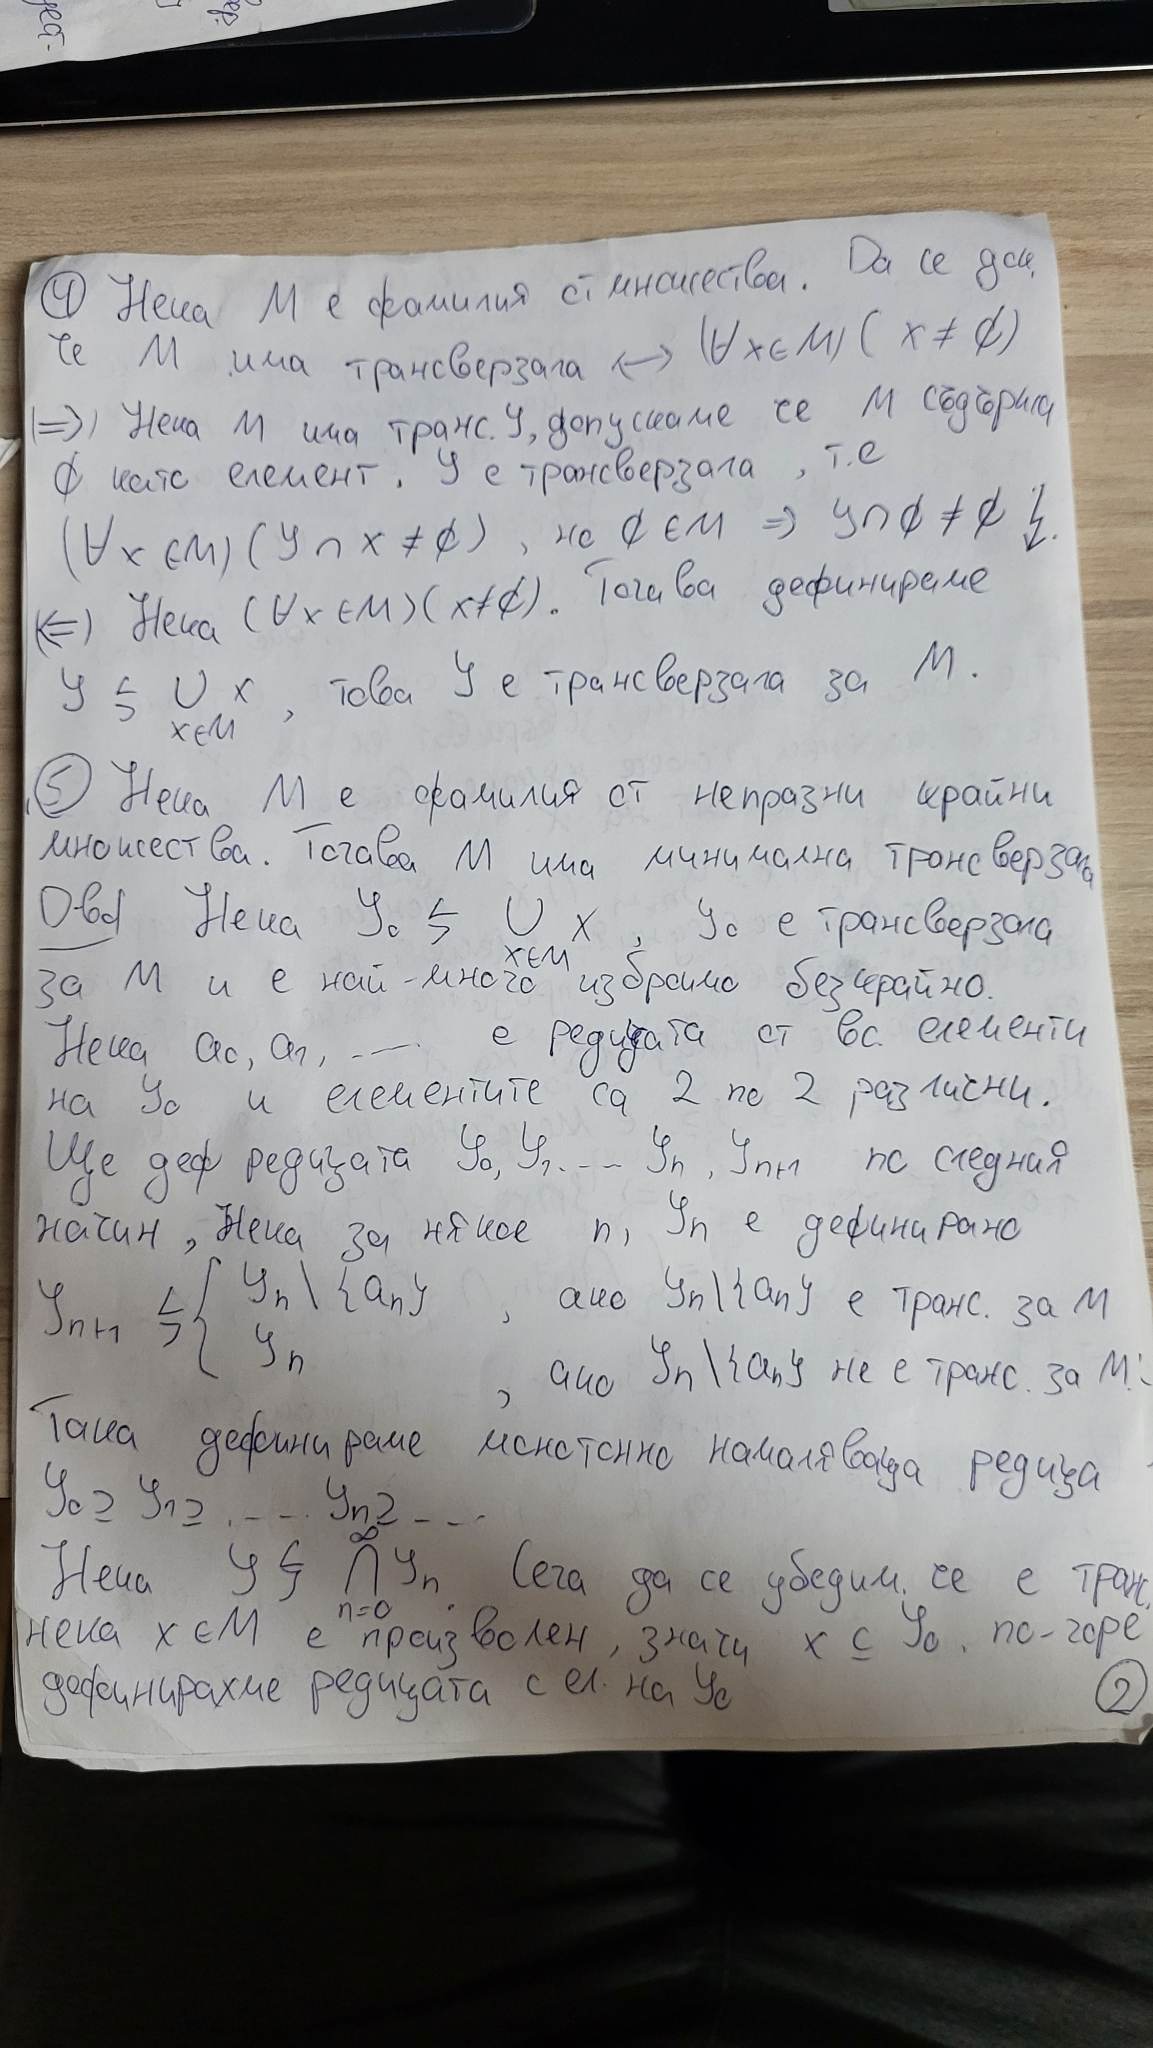 ④ Нека M е фамилия от множества. Да се док,
че M има трансверзала ↔ (∀x∈M)( x ≠ ∅)
|⇒) Нека M има транс. Y, допускаме че M съдържа
∅ като елемент. Y е трансверзала, т.е
(∀x∈M)(Y ∩ x ≠ ∅), но ∅∈M ⇒ Y∩∅ ≠ ∅ ↯.
(⇐) Нека (∀x∈M)(x≠∅). Тогава дефинираме
Y ⇆ ∪ x, това Y е трансверзала за M.
x∈M
⑤ Нека M е фамилия от непразни крайни
множества. Тогава M има минимална трансверзала
D-bo Нека Y₀ ⇆ ∪ x, Y₀ е трансверзала
x∈M
за M и е най-много изброимо безкрайно.
Нека a₀, a₁, .... е редицата от вс. елементи
на Y₀ и елементите са 2 по 2 различни.
Ще деф редицата Y₀, Y₁.... Yₙ, Yₙ₊₁ по следния
начин, Нека за някое n, Yₙ е дефинирано
Yₙ₊₁ ⇆ { Yₙ \ {aₙ} , ако Yₙ\{aₙ} е транс. за M
Yₙ , ако Yₙ\{aₙ} не е транс. за M.
Така дефинираме монотонно намаляваща редица
Y₀ ⊇ Y₁ ⊇ .... Yₙ ⊇ ....
Нека Y ⇆ ∞∩n=0 Yₙ. Сега да се убедим, че е транс.
нека x∈M е произволен, значи x ⊆ Y₀. по-горе
дефинирахме редицата с ел. на Y₀
②